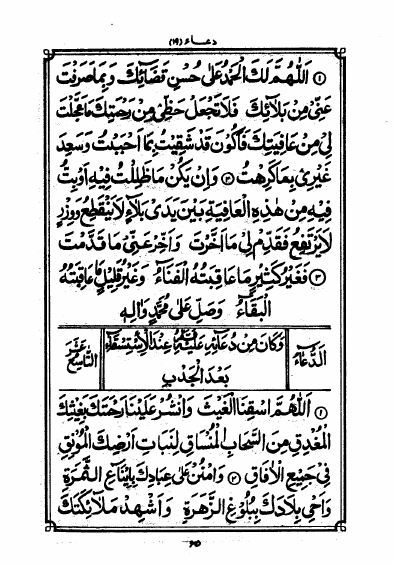 دعاء (١٩)
① اَللّٰهُمَّ لَكَ الْحَمْدُ عَلٰى حُسْنِ قَضَآئِكَ وَبِمَا صَرَفْتَ
عَنِّىْ مِنْ بَلَآئِكَ فَلَا تَجْعَلْ حَظِّىْ مِنْ رَحْمَتِكَ مَا عَجَّلْتَ
لِىْ مِنْ عَافِيَتِكَ فَاَكُوْنَ قَدْ شَقِيْتُ بِمَا اَحْبَبْتُ وَسَعِدَ
غَيْرِىْ بِمَا كَرِهْتُ ② وَاِنْ يَكُنْ مَا ظَلِلْتُ فِيْهِ اَوْبِتُّ
فِيْهِ مِنْ هٰذِهِ الْعَافِيَةِ بَيْنَ يَدَىْ بَلَآءٍ لَا يَنْقَطِعُ وَوِزْرٍ
لَا يَرْتَفِعُ فَقَدِّمْ لِىْ مَا اَخَّرْتَ وَاَخِّرْ عَنِّىْ مَا قَدَّمْتَ
③ فَغَيْرُ كَثِيْرٍ مَا عَاقِبَتُهُ الْفَنَآءُ وَغَيْرُ قَلِيْلٍ مَا عَاقِبَتُهُ
الْبَقَآءُ وَصَلِّ عَلٰى مُحَمَّدٍ وَّاٰلِهٖ
الدُّعَآءُ
وَكَانَ مِنْ دُعَآئِهٖ عَلَيْهِ السَّلَامُ عِنْدَ الْاِسْتِسْقَآءِ
بَعْدَ الْجَدْبِ
التَّاسِعُ عَشَرَ
① اَللّٰهُمَّ اسْقِنَا الْغَيْثَ وَانْشُرْ عَلَيْنَا رَحْمَتَكَ بِغَيْثِكَ
الْمُغْدِقِ مِنَ السَّحَابِ الْمُنْسَاقِ لِنَبَاتِ اَرْضِكَ الْمُوْنِقِ
فِىْ جَمِيْعِ الْاٰفَاقِ ② وَامْنُنْ عَلٰى عِبَادِكَ بِاِيْنَاعِ الثَّمَرَةِ
وَاَحْىِ بِلَادَكَ بِبُلُوْغِ الزَّهَرَةِ وَاَشْهِدْ مَلَآئِكَتَكَ